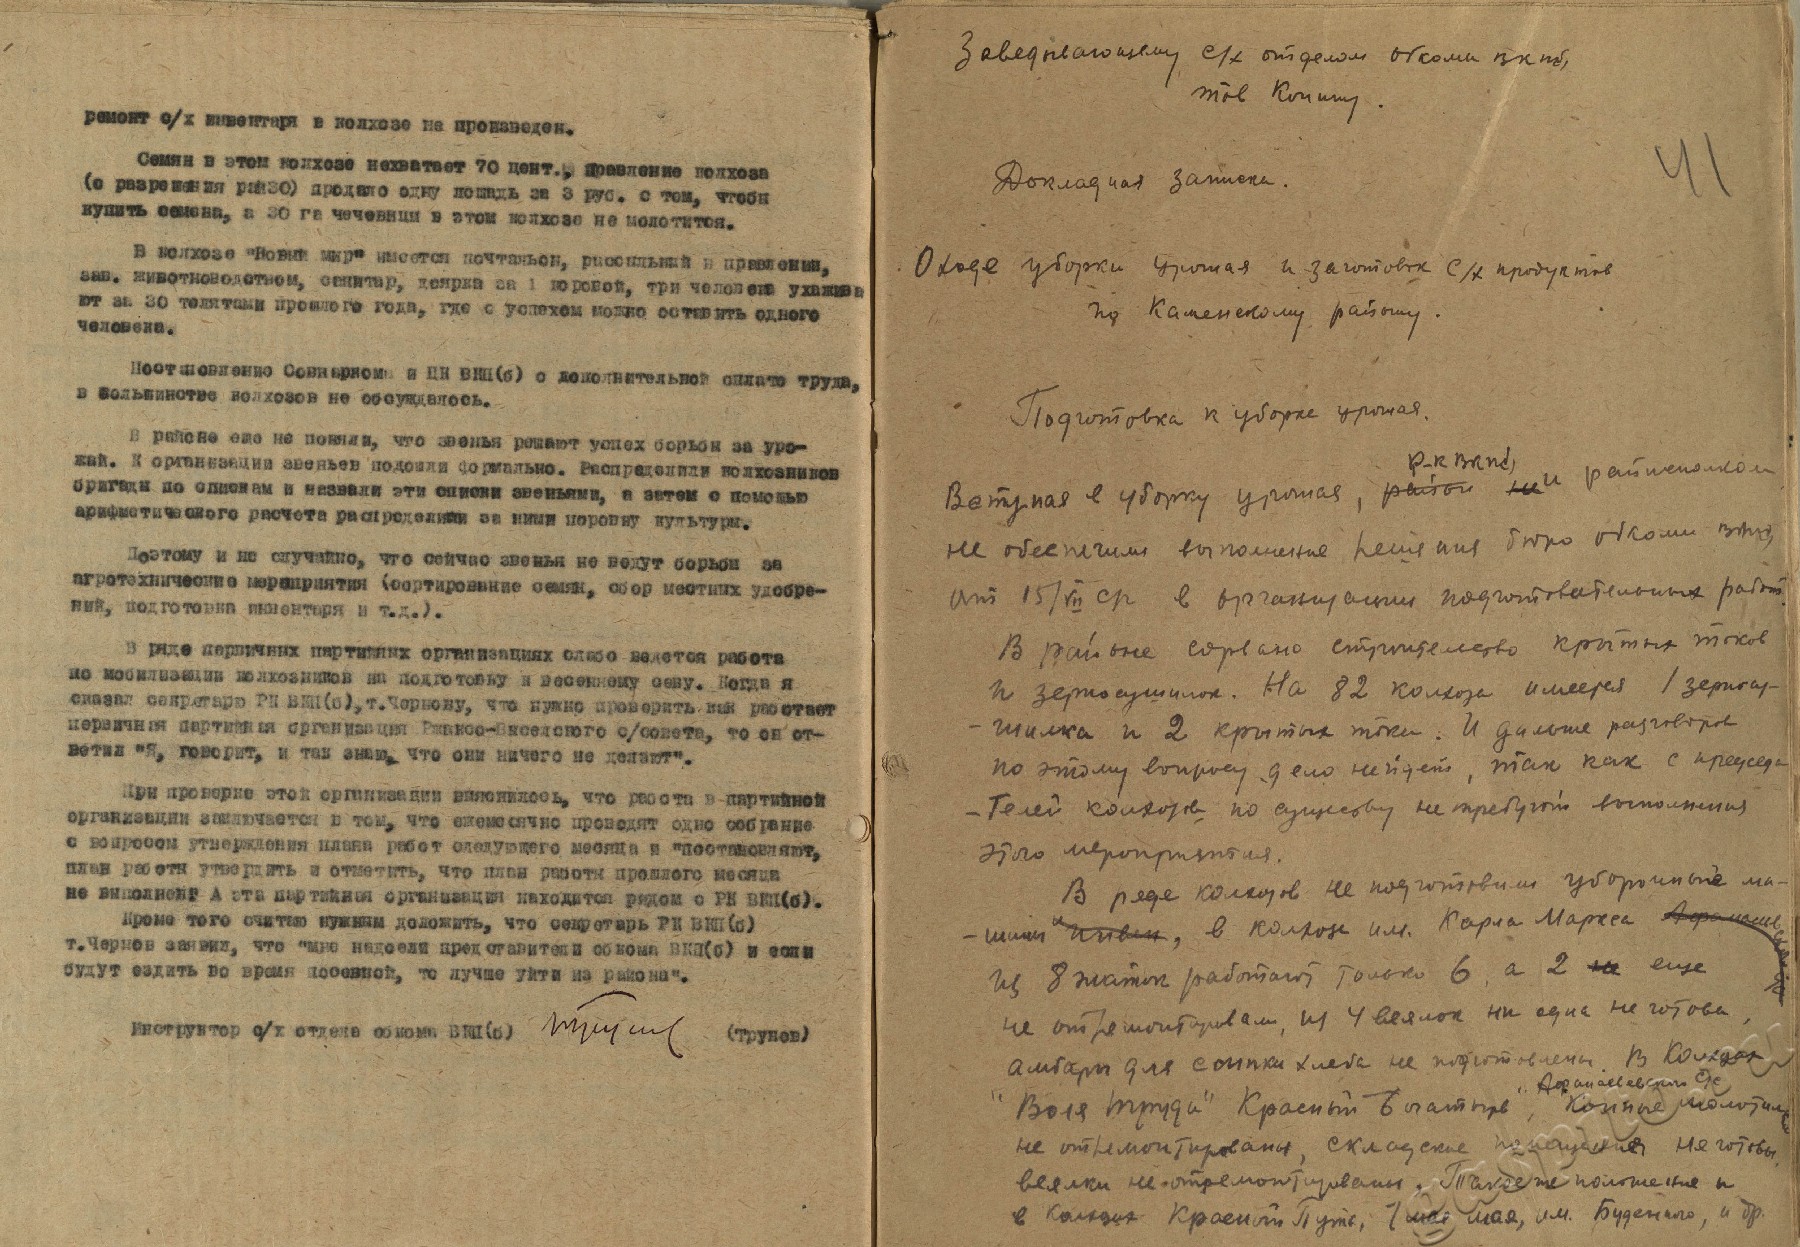 ремонт с/х инвентаря в колхозе на произведен.
Семян в этом колхозе нехватает 70 цент., правление колхоза
(с разрешения райЗО) продало одну лошадь за 3 руб. с тем, чтобы
купить семена, а 30 га чечевицы в этом колхозе не молотится.
В колхозе "Новый мир" имеется почтальон, рассыльный в правлении,
зав. животноводством, санитар, доярка за 1 коровой, три человека ухажива
ют за 30 телятами прошлого года, где с успехом можно оставить одного
человека.
Постановление Совнаркома и ЦК ВКП(б) о дополнительной оплате труда,
в большинстве колхозов не обсуждалось.
В районе еще не поняли, что звенья решают успех борьбы за уро-
жай. К организации звеньев подошли формально. Распределили колхозников
бригады по спискам и назвали эти списки звеньями, а затем с помощью
арифметического расчета распределили за ними поровну культуры.
Поэтому и не случайно, что сейчас звенья не ведут борьбы за
агротехнические мероприятия (сортирование семян, сбор местных удобре-
ний, подготовка инвентаря и т.д.).
В ряде первичных партийных организациях слабо ведется работа
по мобилизации колхозников на подготовку к весеннему севу. Когда я
сказал секретарю РК ВКП(б), т.Чернову, что нужно проверить как работает
первичная партийная организация Ржакса- с/совета, то он от-
ветил "Я, говорит, и так знаю, что они ничего не делают".
При проверке этой организации выяснилось, что работа в партийной
организации заключается в том, что ежемесячно проводят одно собрание
с вопросом утверждения плана работ следующего месяца и "постановляют,
план работы утвердить и отметить, что план работы прошлого месяца
не выполнен" А эта партийная организация находится рядом с РК ВКП(б).
Кроме того считаю нужным доложить, что секретарь РК ВКП(б)
т.Чернов заявил, что "мне надоели представители обкома ВКП(б) и если
будут ездить во время посевной, то лучше уйти из района".
Инструктор с/х отдела обкома ВКП(б) (Трунов)
Заведывающему с/х отделом обкома вкпб,
тов
41
Докладная записка.
О ходе уборки урожая и заготовок с/х продуктов
по Каменскому району.
Подготовка к уборке урожая.
Р-к вкпб,
Вступая в уборку урожая, район не и райисполком
не обеспечили выполнение решения бюро обкома вкпб,
от 15/VII ср в организации подготовительных работ.
В районе сорвано строительство крытых токов
и зерносушилок. На 82 колхоза имеется 1 зерносу-
-шилка и 2 крытых тока. И дальше разговоров
по этому вопросу дело нейдет, так как с председа
-телей колхозов по существу не требуют выполнения
этого мероприятия.
В ряде колхозов не подготовили уборочные ма-
-шины, в колхозе им. Карла Маркса
из 8 жаток работают только 6, а 2 не еще
не отремонтировали, из 4 веялок ни одна не готова,
амбары для ссыпки хлеба не подготовлены. В Колхозах
Афанасьевского с/с
"Воля труда" Красный Богатырь", Конные молотилки
не отремонтированы, складские помещения не готовы,
веялки не отремонтированы. Такое же положение и
в колхозах Красный Путь, 1 мая, им. Буденного, и др.